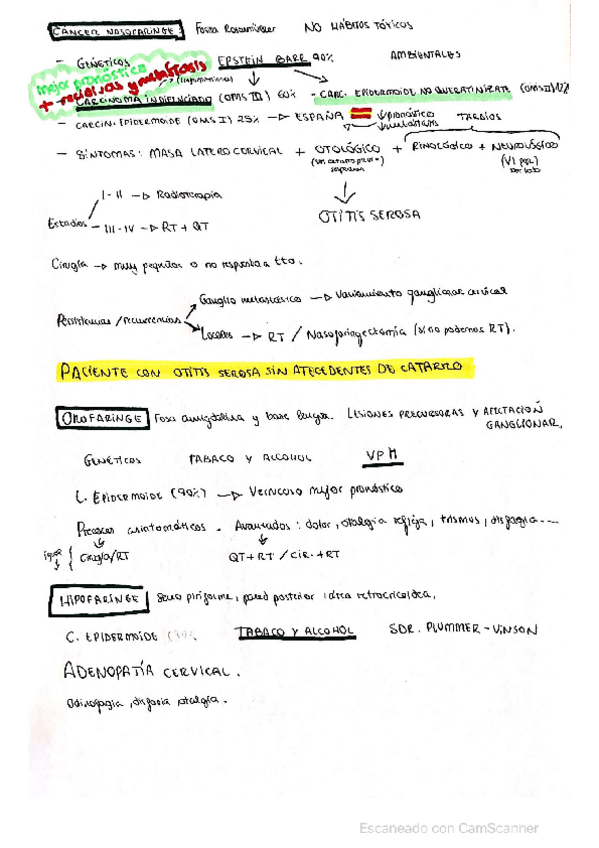 CÁNCER NASOFARINGE: Fosa Rosenmüller NO HÁBITOS TÓXICOS
- GENÉTICOS EPSTEIN BARR 90% AMBIENTALES
mejor pronóstico
+ recidivas y metástasis
- CARCINOMA INDIFENCIADO (OMS III) 60% - CARC. EPIDERMOIDE NO QUERATINIZANTE (OMS II)
- CARCIN. EPIDERMOIDE (OMS I) 25% → ESPAÑA ↓pronóstico
↓metástasis TARDÍOS
- SÍNTOMAS: MASA LATEROCERVICAL + OTOLÓGICO + RINOLÓGICO + NEUROLÓGICO
OTITIS SEROSA
Estadios
I-II → Radioterapia
III-IV → RT + QT
Cirugía → muy pequeños o no respuesta a tto.
Persistencias / recurrencias
Ganglio metastásico → Vaciamiento ganglionar cervical
Locales → RT / Nasofaringectomía (si no podemos RT).
PACIENTE CON OTITIS SEROSA SIN ATECEDENTES DE CATARRO
OROFARINGE Fosa amigdalina y base lengua. LESIONES PRECURSORAS Y AFECTACIÓN
GANGLIONAR.
GENÉTICOS TABACO Y ALCOHOL VPH
C. EPIDERMOIDE (90%) → Verrucoso mejor pronóstico
Precoces asintomáticos. Avanzados: dolor, otalgia refleja, trismus, disfagia....
igual { Cirugía/RT QT+RT / CIR.+RT
HIPOFARINGE Seno piriforme, pared posterior, área retrocricoidea.
C. EPIDERMOIDE TABACO Y ALCOHOL SDR. PLUMMER-VINSON
ADENOPATÍA CERVICAL.
Odinofagia, disfagia otalgia.
Escaneado con CamScanner